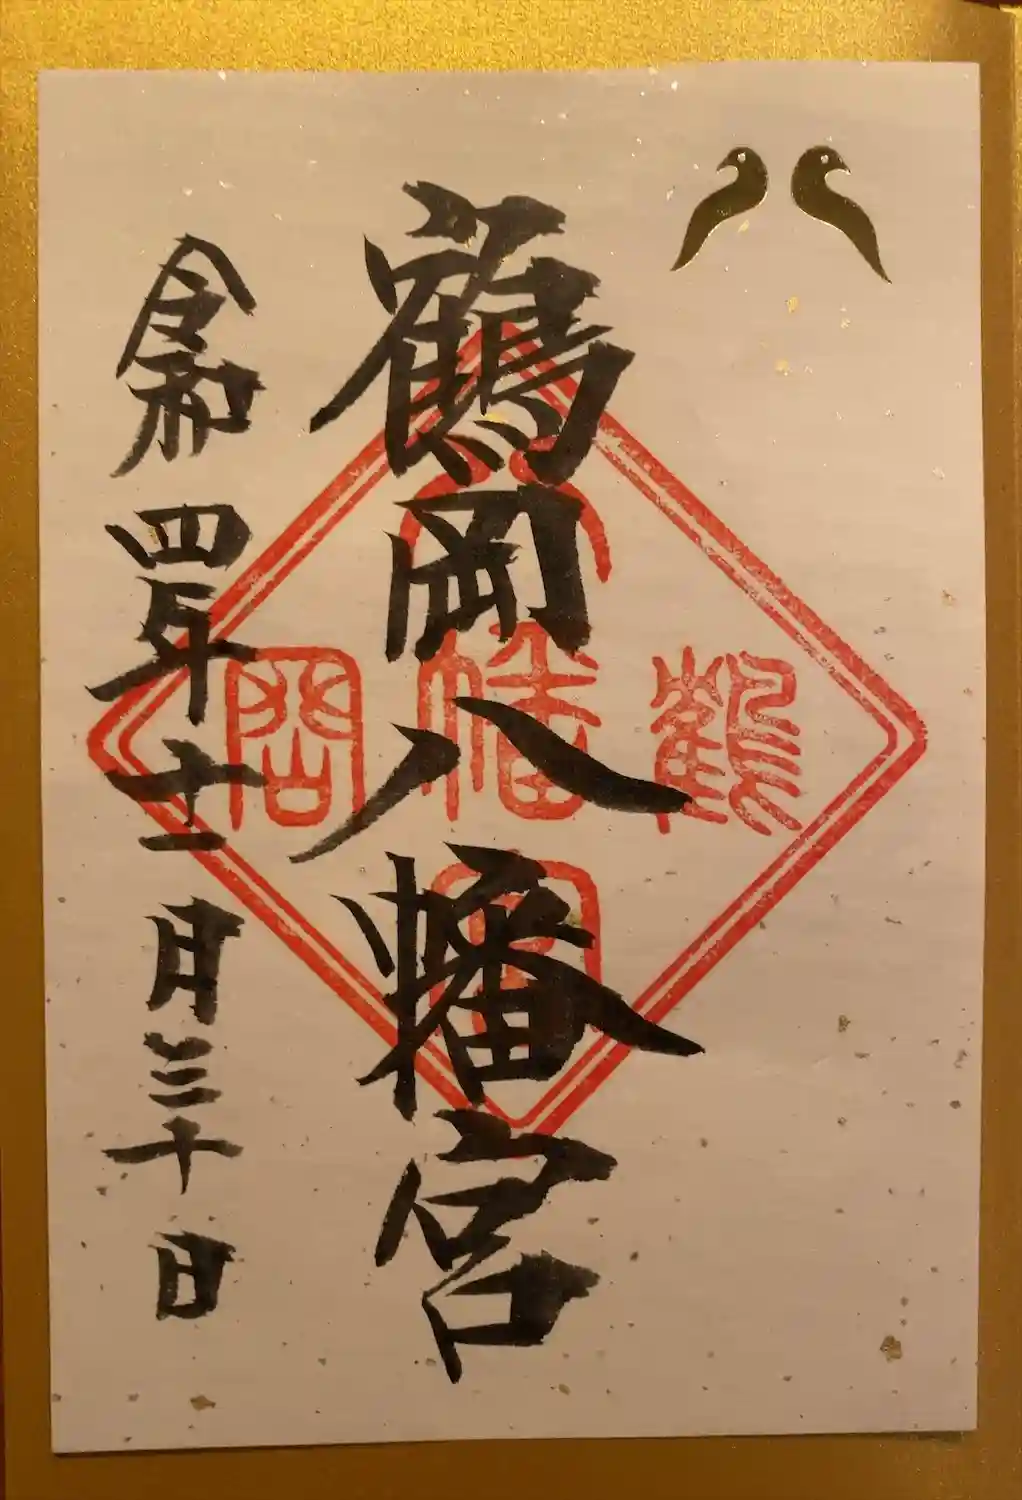 鶴岡八幡宮
令和四年十一月三十日
八
幡
鶴
岡
宮